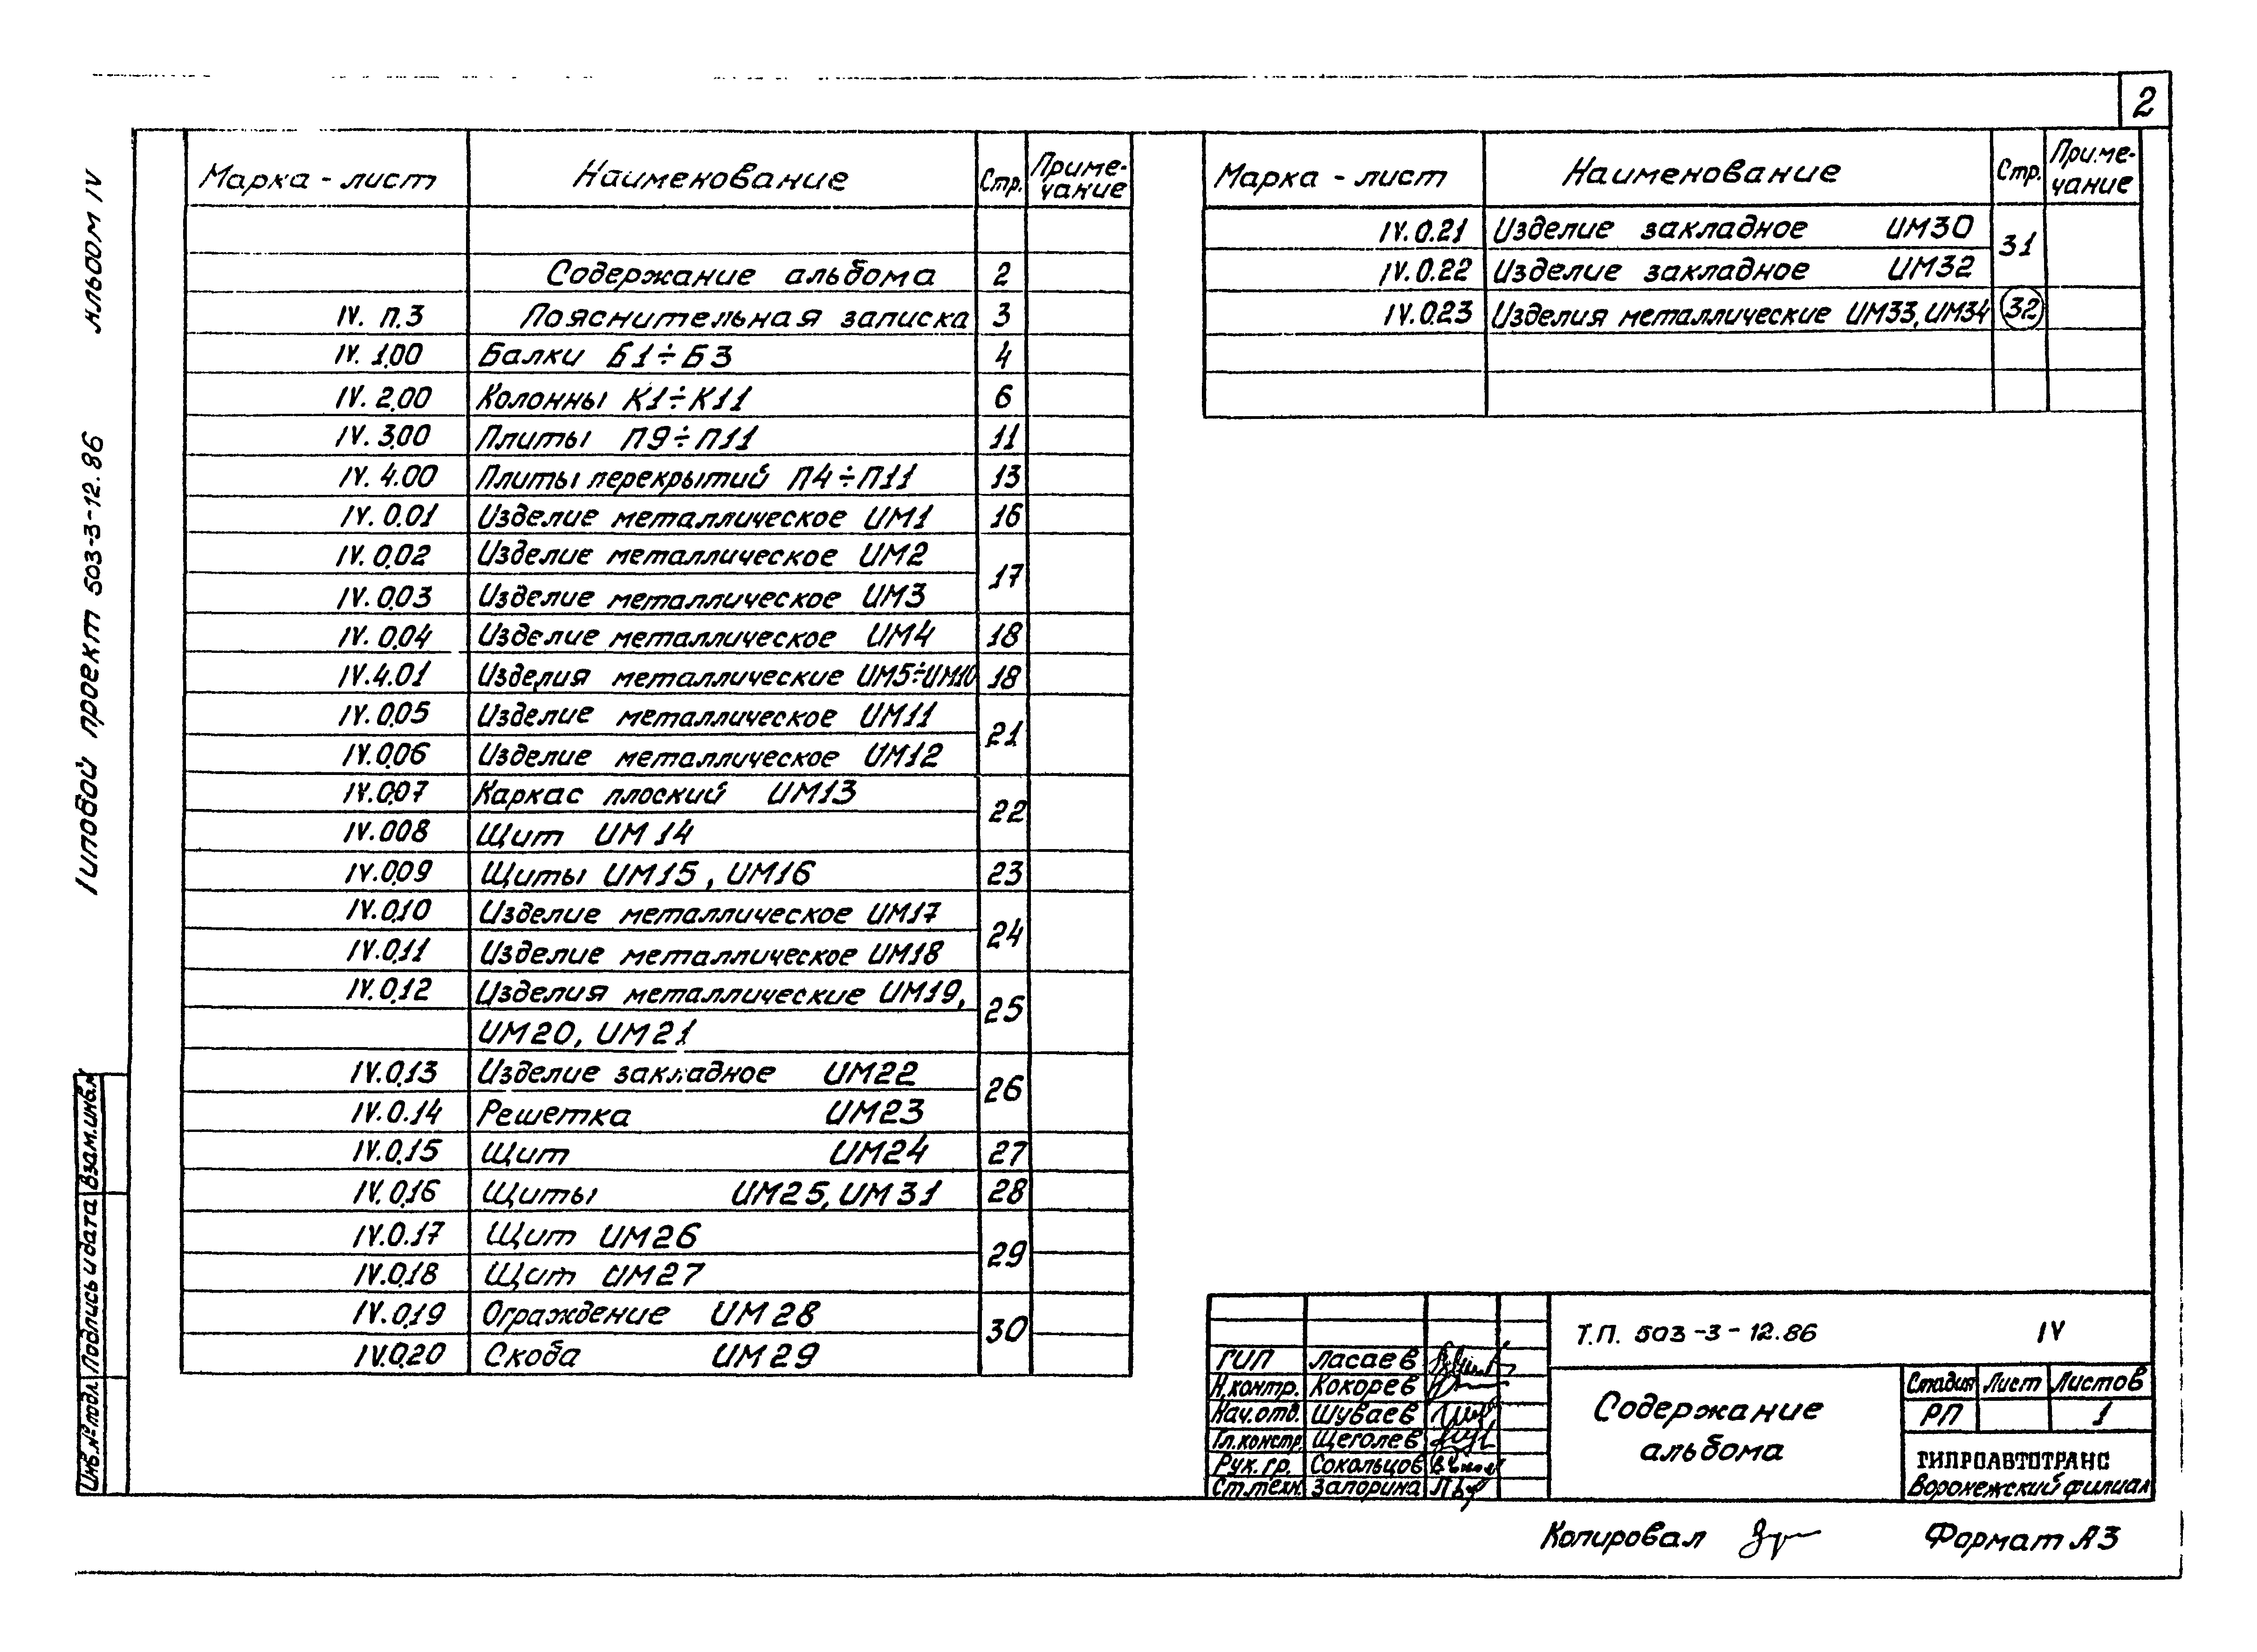 2
Альбом IV
Типовой проект 503-3-12.86
Взам.инв.№
Подпись и дата
Инв.№ подл.
Марка - лист Наименование Стр. Приме-
чание
Содержание альбома 2
IV. П.3 Пояснительная записка 3
IV. 1.00 Балки Б1÷Б3 4
IV. 2.00 Колонны К1÷К11 6
IV. 3.00 Плиты П9÷П11 11
IV. 4.00 Плиты перекрытий П4÷П11 13
IV. 0.01 Изделие металлическое ИМ1 16
IV. 0.02 Изделие металлическое ИМ2
17
IV. 0.03 Изделие металлическое ИМ3
IV. 0.04 Изделие металлическое ИМ4 18
IV.4.01 Изделия металлические ИМ5÷ИМ10 18
IV. 0.05 Изделие металлическое ИМ11
21
IV.0.06 Изделие металлическое ИМ12
IV.0.07 Каркас плоский ИМ13
22
IV.008 Щит ИМ14
IV.0.09 Щиты ИМ15, ИМ16 23
IV.0.10 Изделие металлическое ИМ17
24
IV.0.11 Изделие металлическое ИМ18
IV.0.12 Изделия металлические ИМ19,
25
ИМ20, ИМ21
IV.0.13 Изделие закладное ИМ22
26
IV.0.14 Решетка ИМ23
IV.0.15 Щит ИМ24 27
IV.0.16 Щиты ИМ25, ИМ31 28
IV.0.17 Щит ИМ26
29
IV.0.18 Щит ИМ27
IV.0.19 Ограждение ИМ28
30
IV.0.20 Скоба ИМ29
Марка - лист Наименование Стр. Приме-
чание
IV.0.21 Изделие закладное ИМ30
31
IV.0.22 Изделие закладное ИМ32
IV.0.23 Изделия металлические ИМ33, ИМ34 32
Т.П. 503-3-12.86 IV
ГИП Ласаев
Н.контр. Кокорев
Нач.отд. Шуваев
Гл.констр. Щеголев
Рук.гр. Сокольцов
Ст.техн. Запорина
Содержание
альбома
Стадия Лист Листов
РП 1
ГИПРОАВТОТРАНС
Воронежский филиал
Копировал
Формат А3